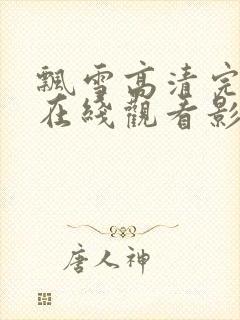 飄雪高清完
在綫觀看影
唐人神